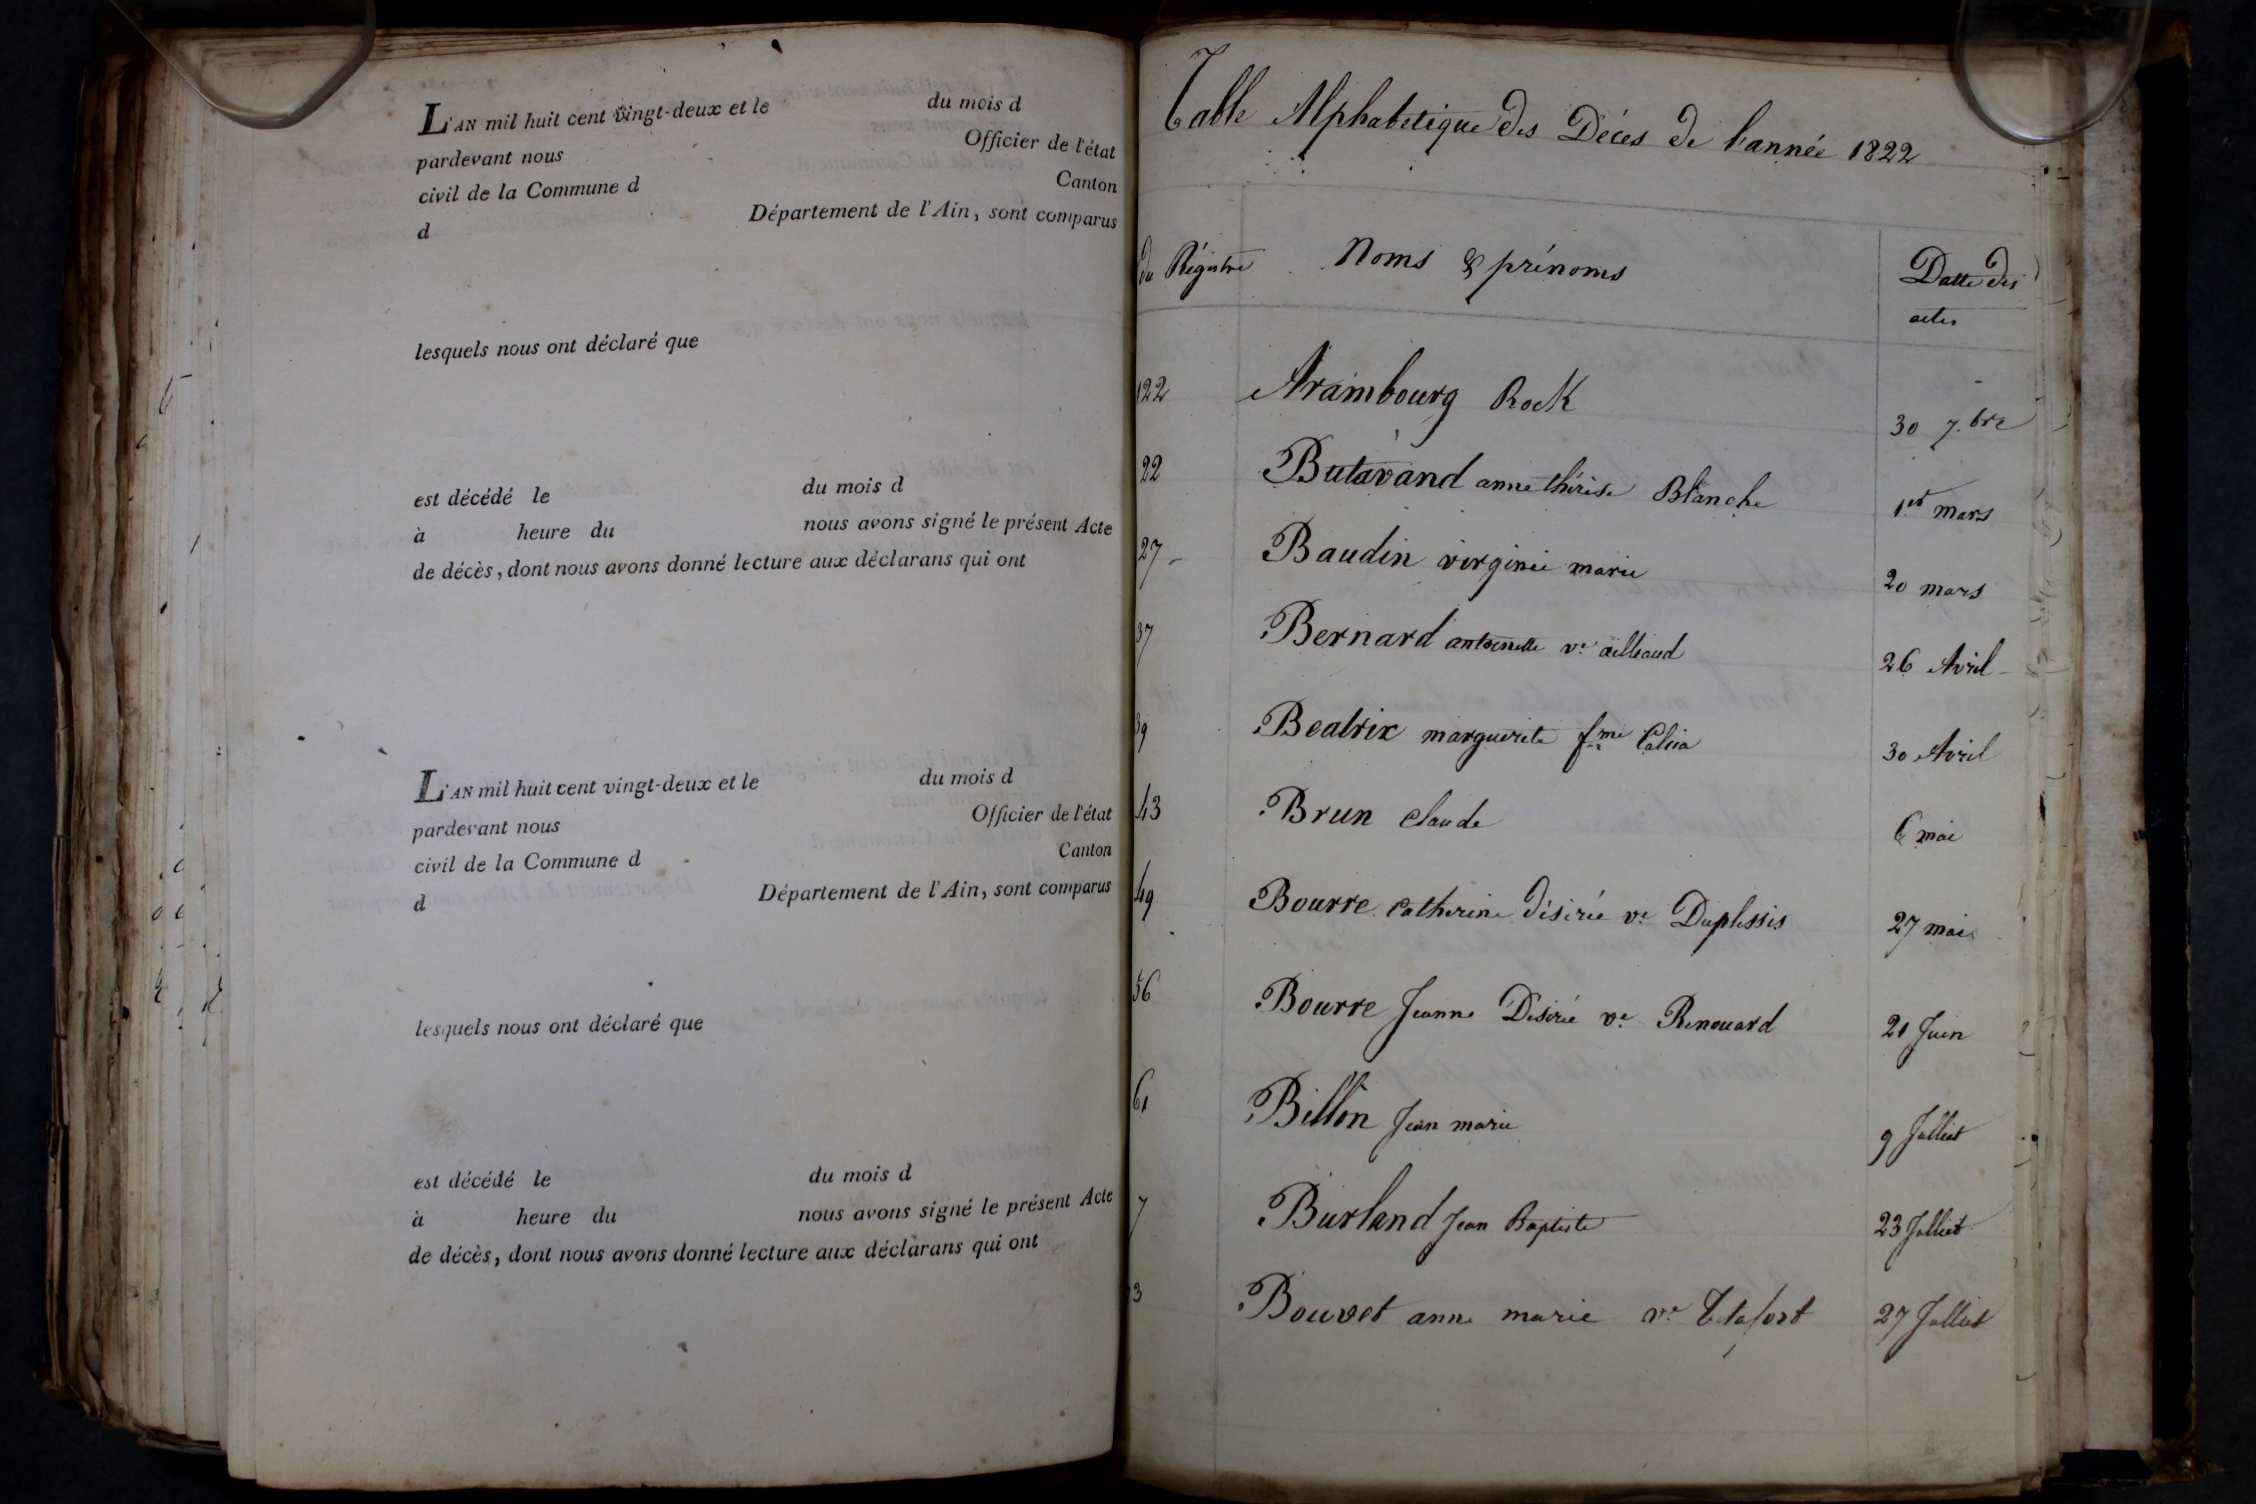 L'AN mil huit cent vingt-deux et le du mois d
pardevant nous Officier de l'état
civil de la Commune d Canton
d Département de l'Ain, sont comparus
lesquels nous ont déclaré que
est décédé le du mois d
à heure du nous avons signé le présent Acte
de décès, dont nous avons donné lecture aux déclarans qui ont
L'AN mil huit cent vingt-deux et le du mois d
pardevant nous Officier de l'état
civil de la Commune d Canton
d Département de l'Ain, sont comparus
lesquels nous ont déclaré que
est décédé le du mois d
à heure du nous avons signé le présent Acte
de décès, dont nous avons donné lecture aux déclarans qui ont
Table Alphabetique des Décès de l'année 1822
du Régistre Noms & prénoms Datte des
actes
122 Arambourg Rock 30 7.bre
22 Butavand anne thérèse Blanche 1er mars
27 Baudin virginie marie 20 mars
37 Bernard antoinette ve ailliaud 26 Avril
39 Beatrix marguerite fme 30 Avril
43 Brun Claude 6 mai
49 Bourre Catherine Désirée ve Duplessis 27 mai
56 Bourre Jeanne Désirée ve Renouard 21 Juin
61 Billon Jean marie 9 Julliet
7 Burland Jean Baptiste 23 Julliet
3 Bouvet anne marie ve Tetafort 27 Julliet